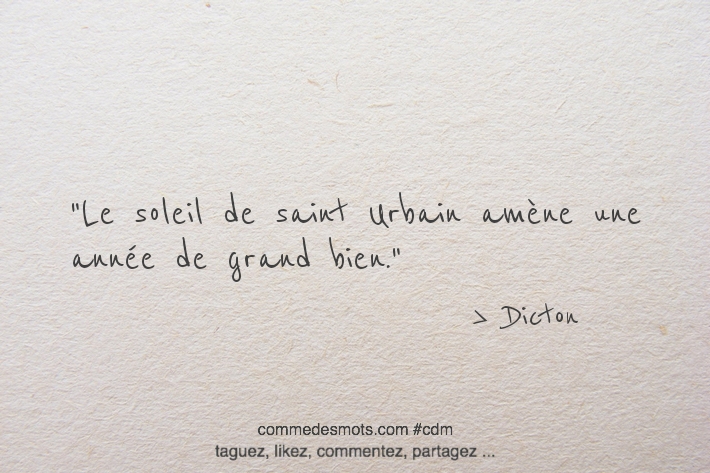 "Le soleil de saint Urbain amène une
année de grand bien."
> Dicton
commedesmots.com #cdm
taguez, likez, commentez, partagez ...